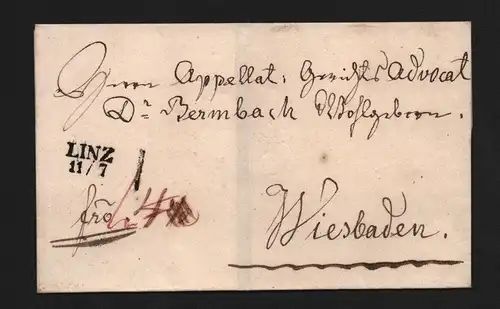 Herrn Appellat: Gerichts Advocat
Dr Bermbach Wohlgeborn.
LINZ
11/7
frco
Wiesbaden.